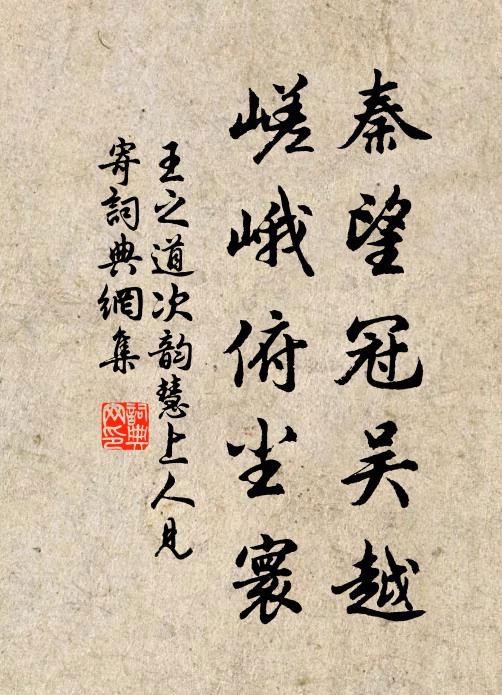 秦望冠吴越
嵯峨俯尘寰
王之道次韵慧上人見
寄詞典網集
詞典网印